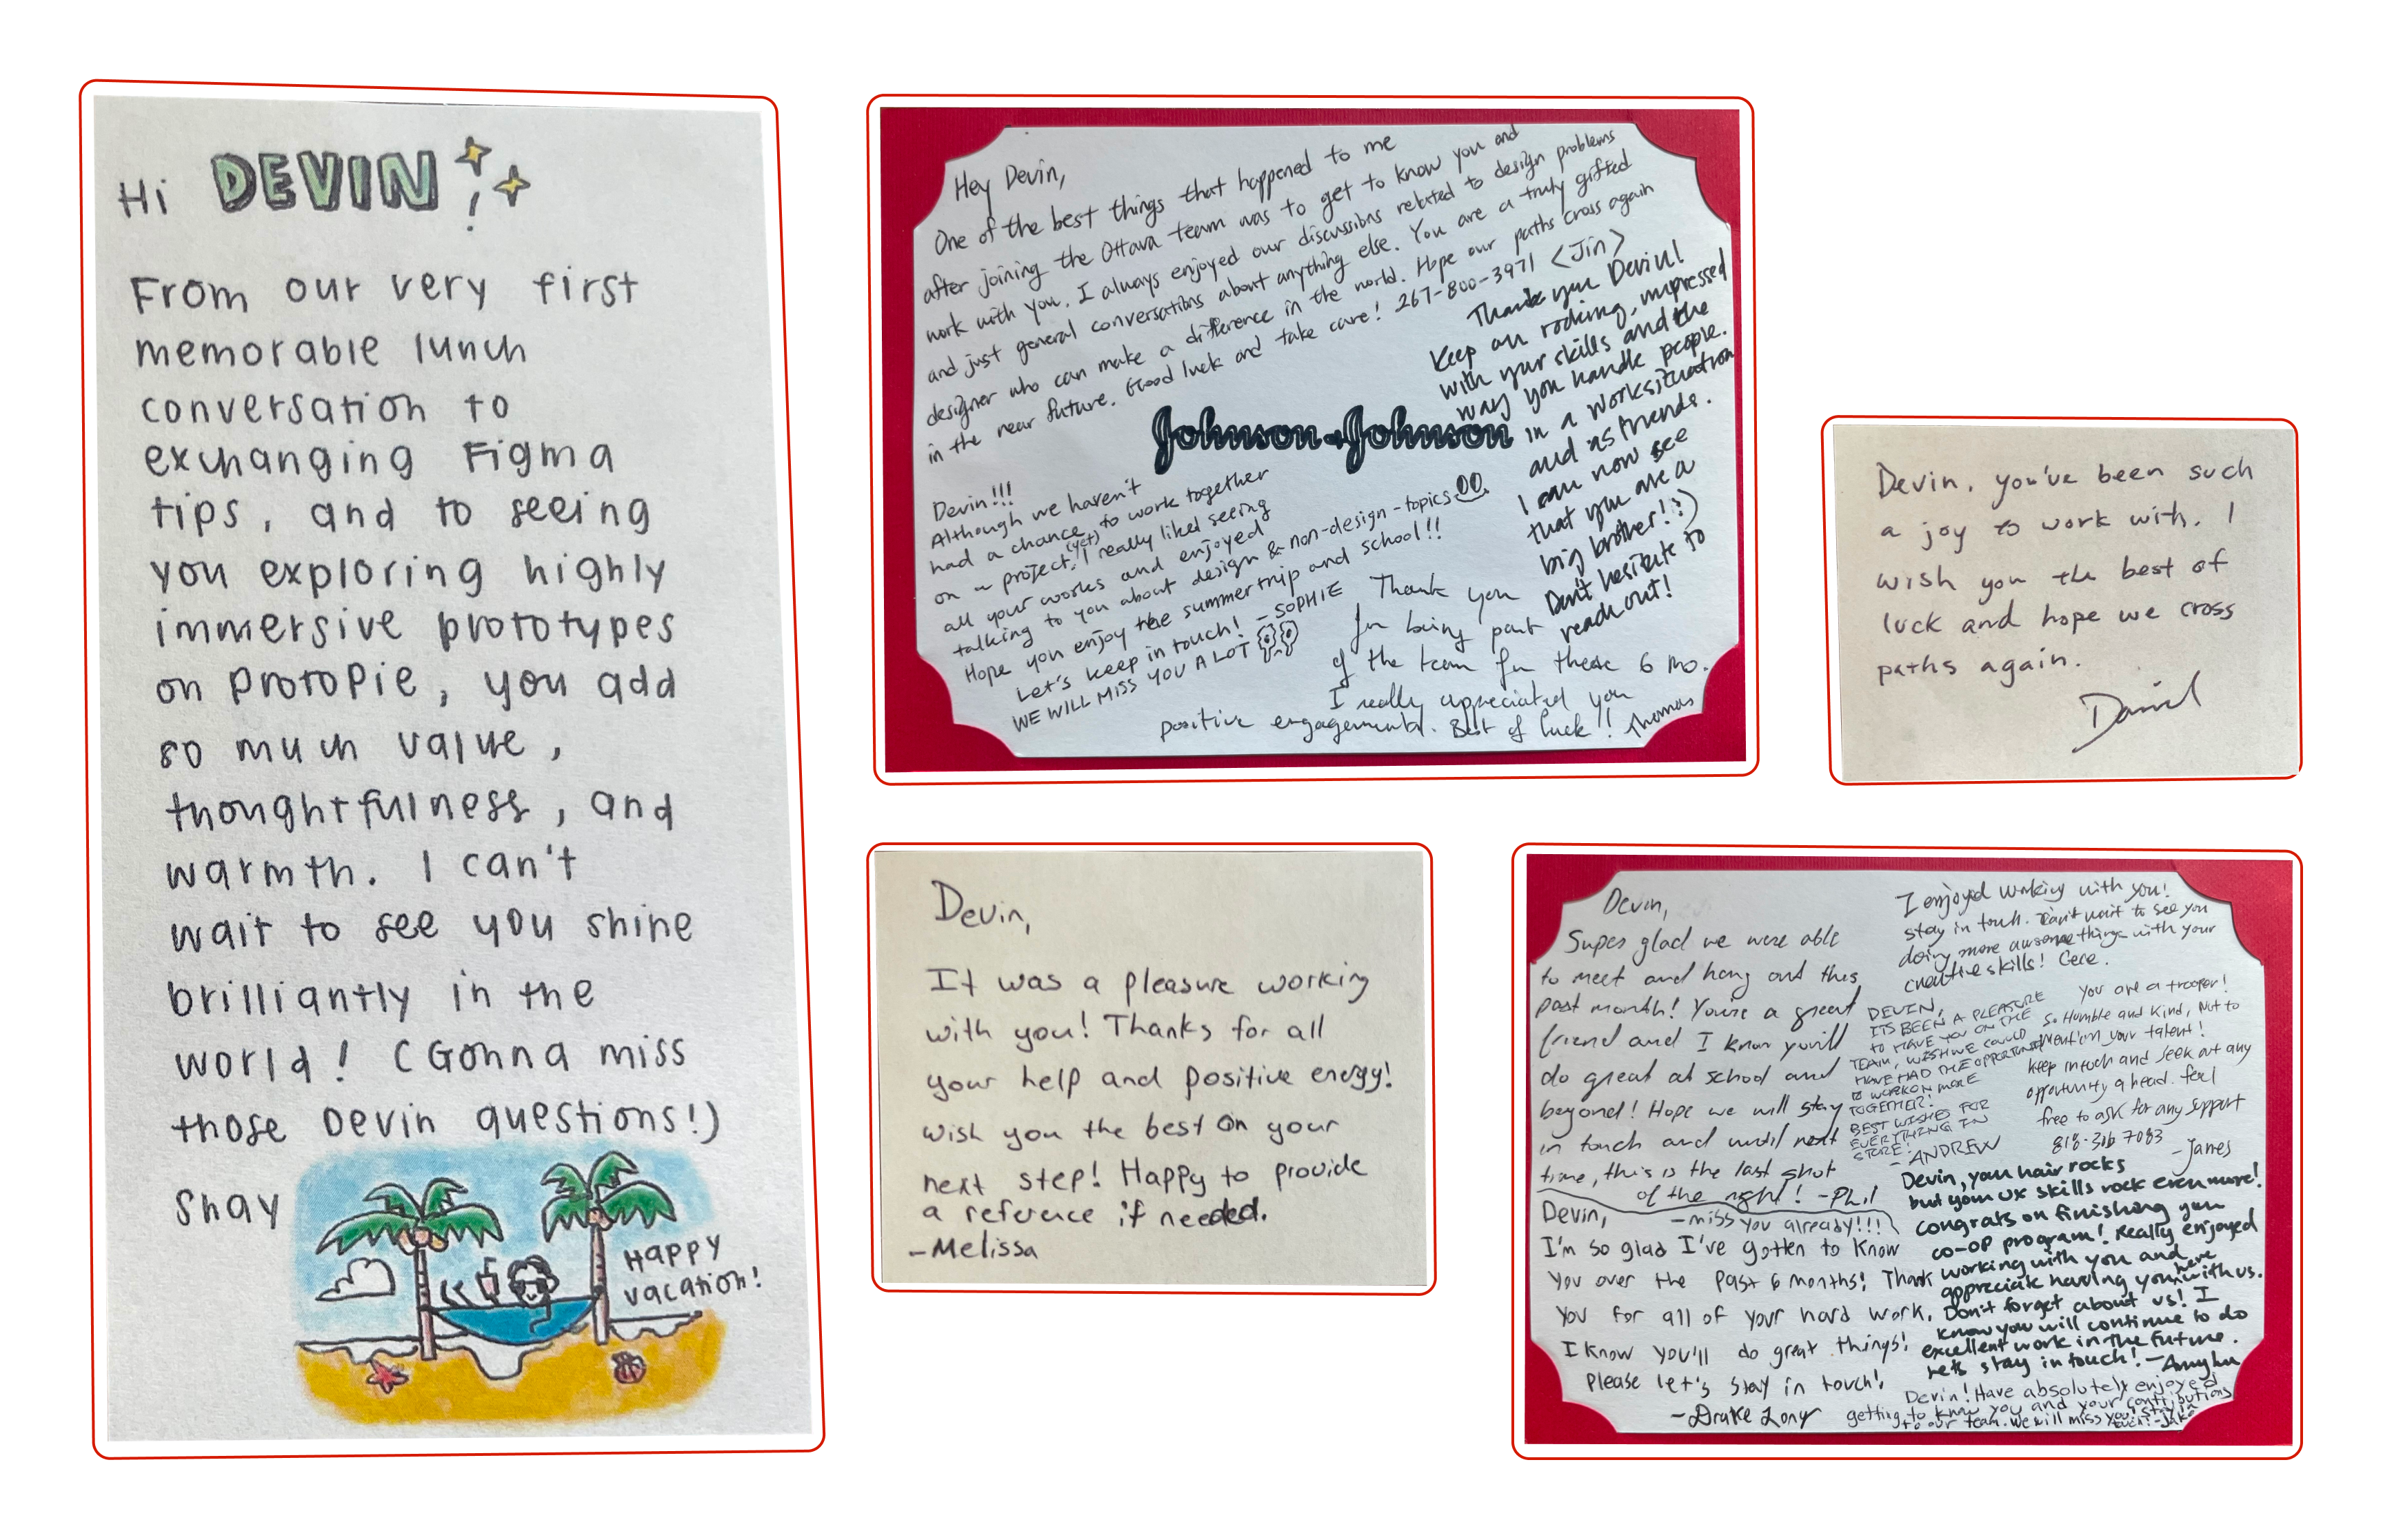 Hi DEVIN!
From our very first
memorable lunch
conversation to
exchanging Figma
tips, and to seeing
you exploring highly
immersive prototypes
on ProtoPie, you add
so much value,
thoughtfulness, and
warmth. I can't
wait to see you shine
brilliantly in the
world! (Gonna miss
those Devin questions!)
Shay
HAPPY
vacation!
Hey Devin,
One of the best things that happened to me
after joining the Ottava team was to get to know you and
work with you. I always enjoyed our discussions related to design problems
and just general conversations about anything else. You are a truly gifted
designer who can make a difference in the world. Hope our paths cross again
in the near future. Good luck and take care! 267-800-3971 <Jin>
Thank you Devin!
Keep on rocking, impressed
with your skills and the
way you handle people.
in a work situation
and as friends.
I can now see
that you are a
big brother! :)
Don't hesitate to
reach out!
Johnson & Johnson
Devin!!!
Although we haven't
had a chance to work together
on a project (yet), I really liked seeing
all your works and enjoyed
talking to you about design & non-design-topics
Hope you enjoy the summer trip and school!!
Let's keep in touch! - SOPHIE
WE WILL MISS YOU A LOT
Thank you
for being part
of the team for these 6 mo.
I really appreciated you
positive engagements. Best of luck!! Thomas
Devin, you've been such
a joy to work with. I
wish you the best of
luck and hope we cross
paths again.
Daniel
Devin,
It was a pleasure working
with you! Thanks for all
your help and positive energy!
Wish you the best on your
next step! Happy to provide
a reference if needed.
-Melissa
Devin,
Super glad we were able
to meet and hang out this
past month! You're a great
friend and I know you'll
do great at school and
beyond! Hope we will stay
in touch and until next
time, this is the last shot
of the night! -Phil
I enjoyed working with you!
stay in touch. Can't wait to see you
doing more awesome things with your
creative skills! Cece.
DEVIN,
ITS BEEN A PLEASURE
TO HAVE YOU ON THE
TEAM, WISH WE COULD
HAVE HAD THE OPPORTUNITY
TO WORK ON MORE
TOGETHER!
BEST WISHES FOR
EVERYTHING IN
STORE!
- ANDREW
You are a trooper!
So Humble and Kind, Not to
mention your talent!
keep in touch and seek out any
opportunity ahead. feel
free to ask for any support
818-316 7083
-James
Devin,
-miss you already!!!
I'm so glad I've gotten to know
you over the past 6 months! Thank
you for all of your hard work.
I know you'll do great things!
Please let's stay in touch!
-Drake Long
Devin, your hair rocks
but your UX skills rock even more!
congrats on finishing you
co-op program! Really enjoyed
working with you and
appreciate having you here with us.
Don't forget about us! I
know you will continue to do
excellent work in the future.
Lets stay in touch! -
Devin! Have absolutely enjoyed
getting to know you and your contributions
to our team. We will miss you! Stay in
touch! -Jake